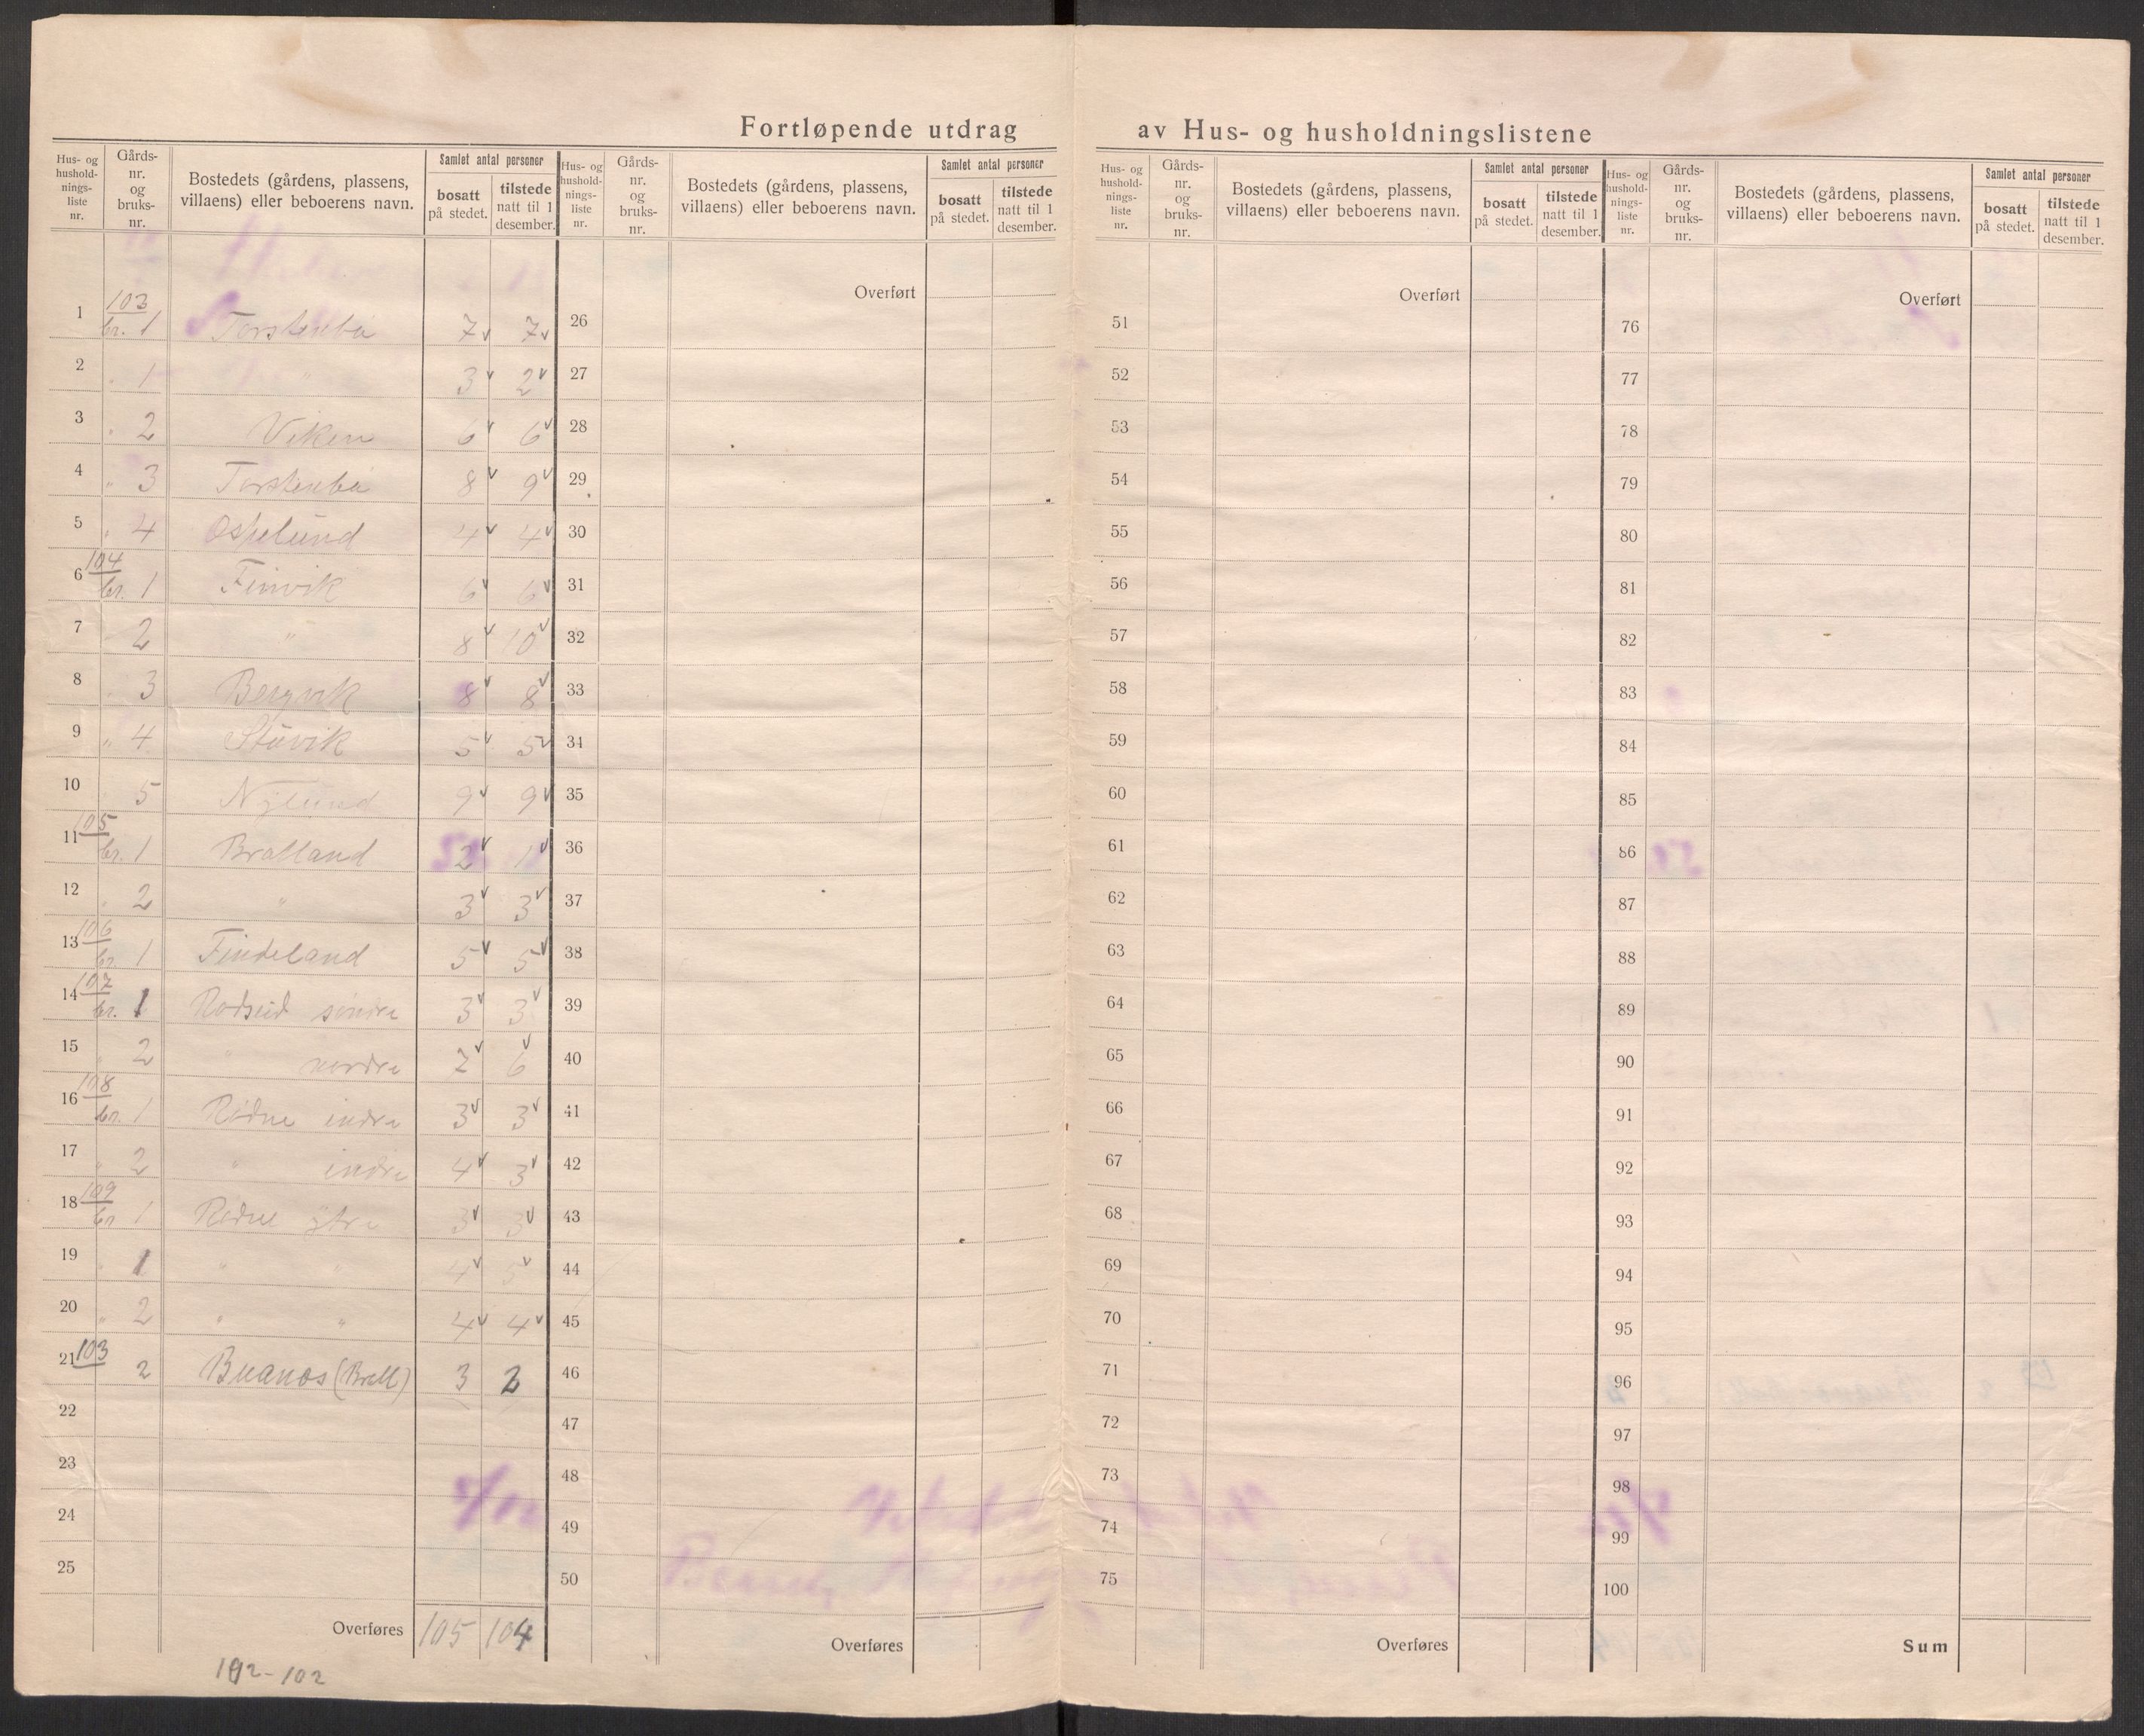 Fortløpende utdrag av Hus- og husholdningslistene
Hus- og hushold- nings- liste nr. | Gårds- nr. og bruks- nr. | Bostedets (gårdens, plassens, villaens) eller beboerens navn. | Samlet antal personer | bosatt på stedet. | tilstede natt til 1 desember.
Hus- og hushold- nings- liste nr. | Gårds- nr. og bruks- nr. | Bostedets (gårdens, plassens, villaens) eller beboerens navn. | Samlet antal personer | bosatt på stedet. | tilstede natt til 1 desember.
Hus- og hushold- nings- liste nr. | Gårds- nr. og bruks- nr. | Bostedets (gårdens, plassens, villaens) eller beboerens navn. | Samlet antal personer | bosatt på stedet. | tilstede natt til 1 desember.
Hus- og hushold- nings- liste nr. | Gårds- nr. og bruks- nr. | Bostedets (gårdens, plassens, villaens) eller beboerens navn. | Samlet antal personer | bosatt på stedet. | tilstede natt til 1 desember.
1 103 br. 1 Torstenbø 7 v 7 v
2 " 1 " 3 v 2 v
3 " 2 Viken 6 v 6 v
4 " 3 Torstenbø 8 v 9 v
5 " 4 Ospelund 4 v 4 v
6 104 br. 1 Finvik 6 v 6 v
7 2 " 8 v 10 v
8 3 Bergvik 8 v 8 v
9 " 4 Stüvik 5 v 5 v
10 5 Nylund 9 v 9 v
11 105 br. 1 Bratland 2 v 1 v
12 " 2 " 3 v 3 v
13 106 br. 1 Findeland 5 v 5 v
14 107 br. 1 Rødseid søndre 3 v 3 v
15 " 2 " nordre 7 v 6 v
16 108 br. 1 Rødne indre 3 v 3 v
17 " 2 " indre 4 v 3 v
18 109 br. 1 Rødne ytre 3 v 3 v
19 " 1 " " 4 v 5 v
20 " 2 " " 4 v 4 v
21 103 2 Buanes (Brell) 3 2
22
23
24
25
Overføres 105 104
102-102
Overført
26
27
28
29
30
31
32
33
34
35
36
37
38
39
40
41
42
43
44
45
46
47
48
49
50
Overføres
Overført
51
52
53
54
55
56
57
58
59
60
61
62
63
64
65
66
67
68
69
70
71
72
73
74
75
Overføres
Overført
76
77
78
79
80
81
82
83
84
85
86
87
88
89
90
91
92
93
94
95
96
97
98
99
100
Sum